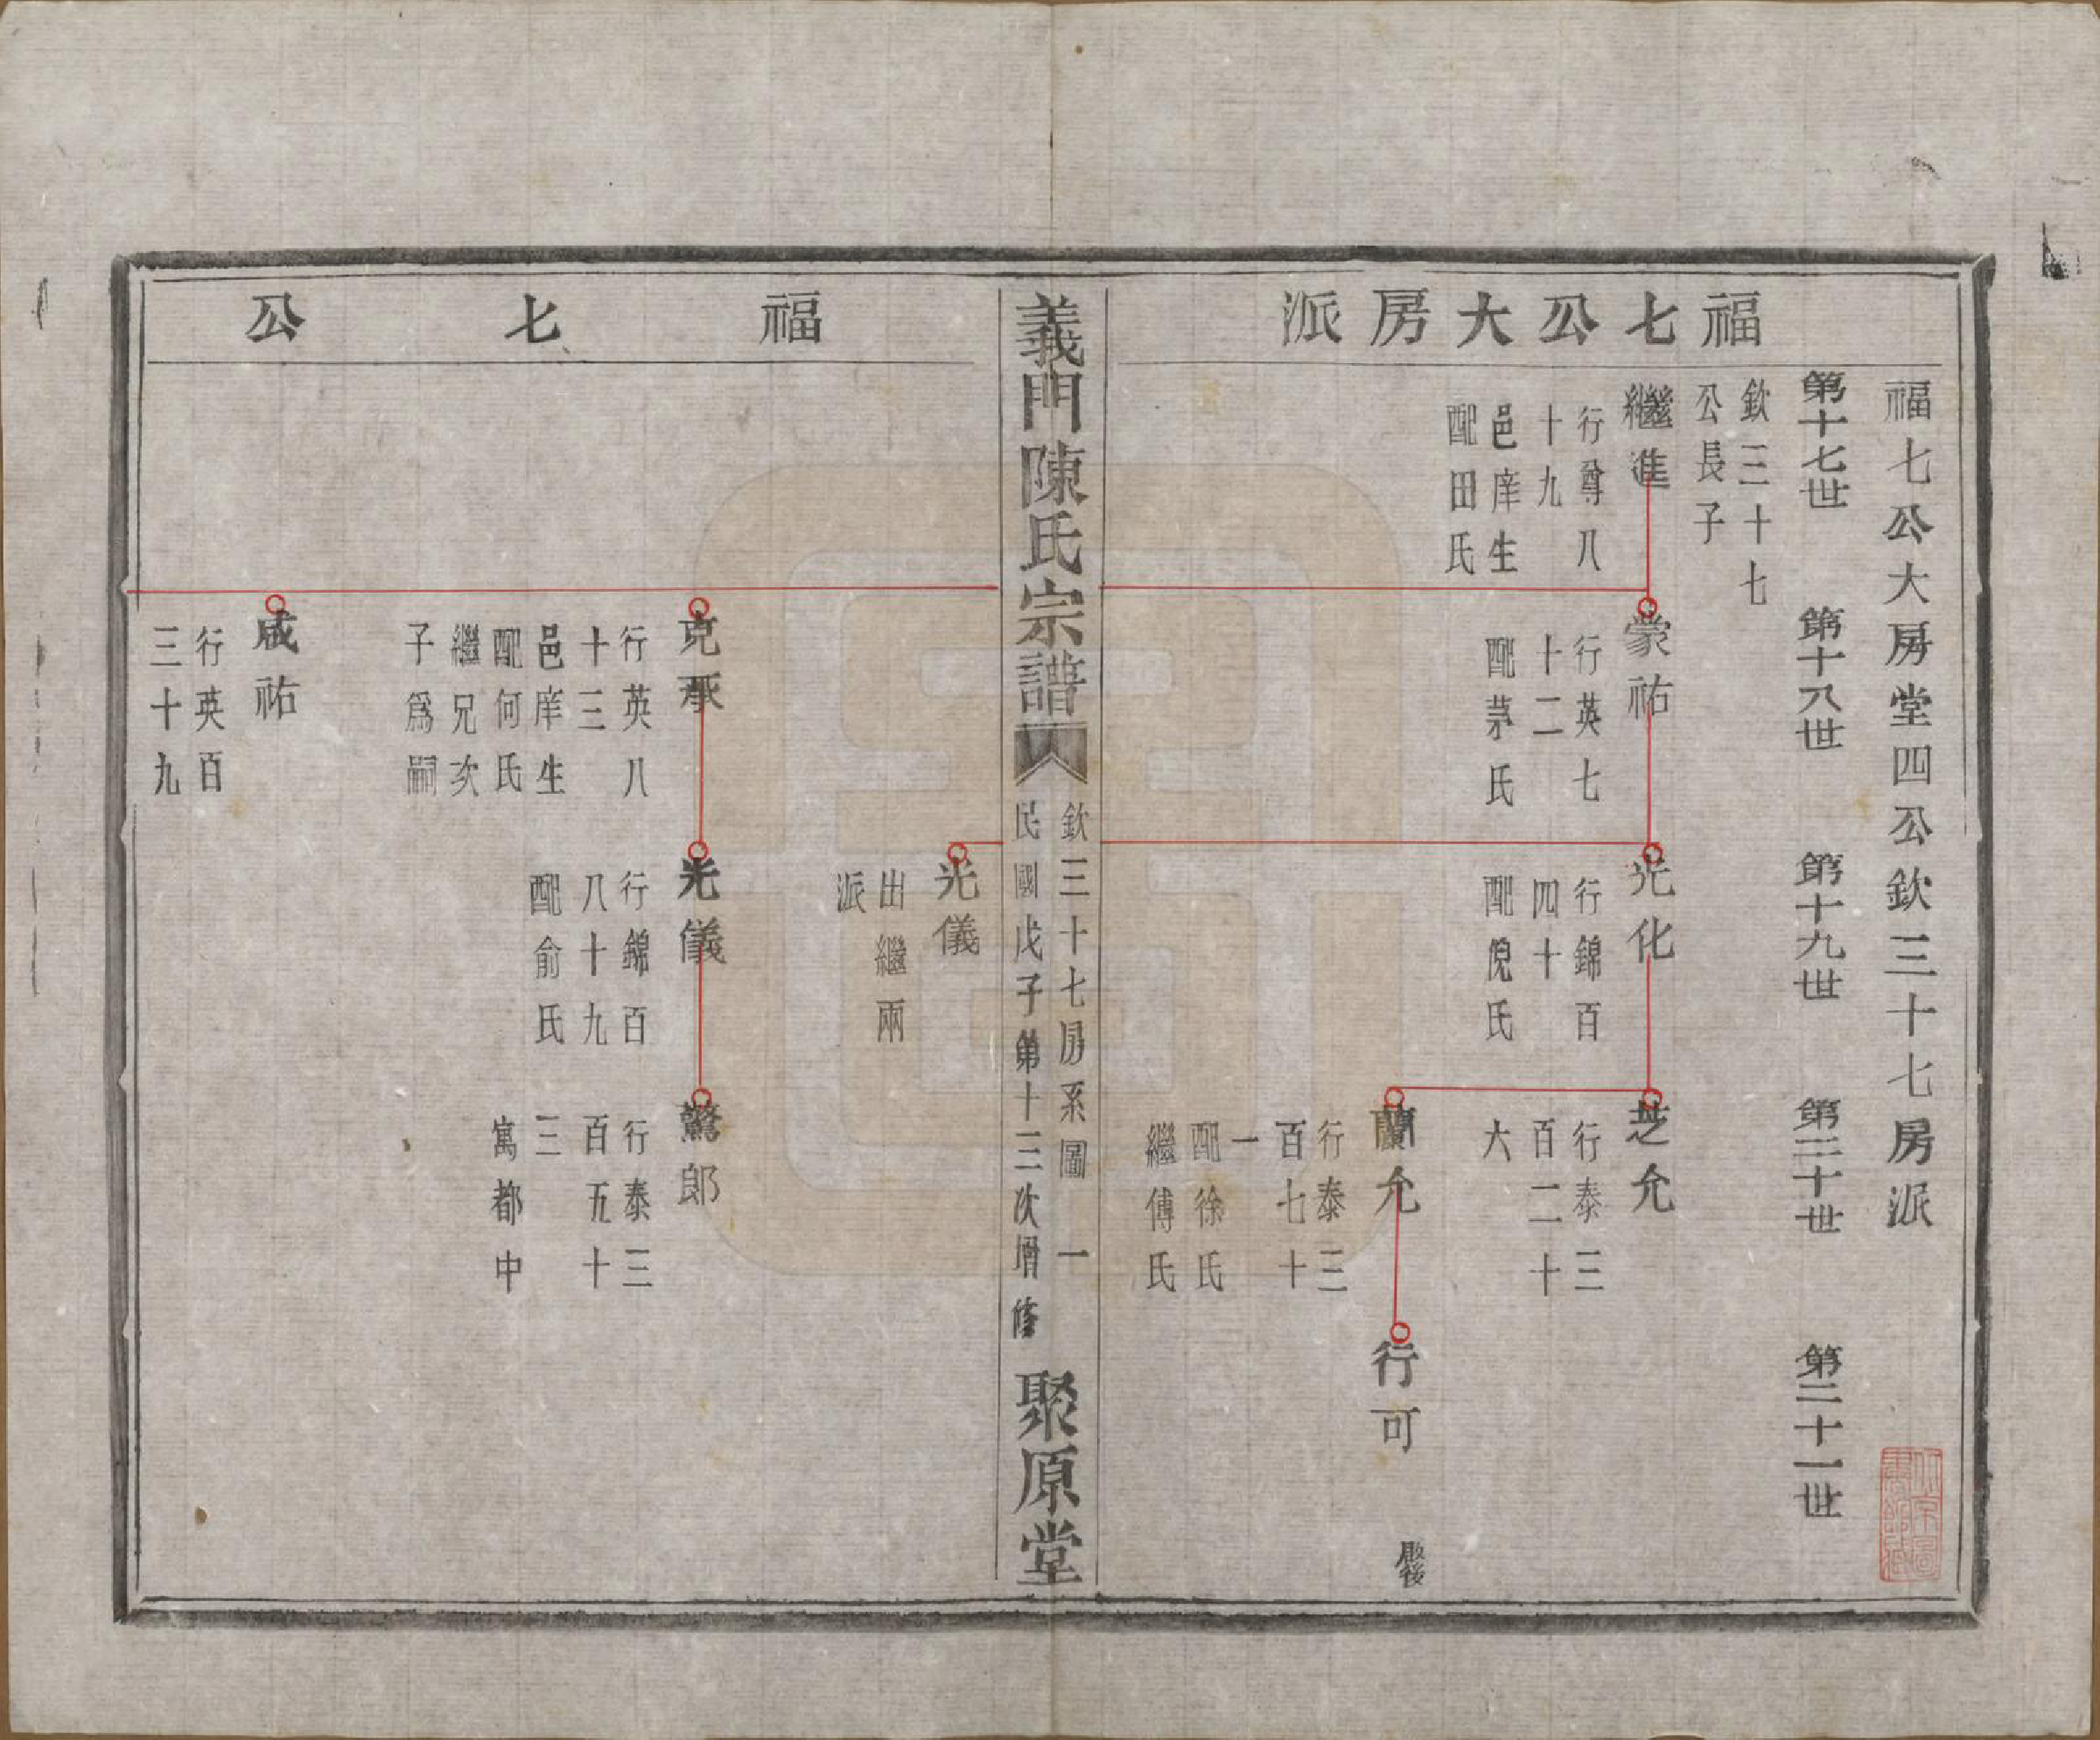 福七公大房派
福七公大房堂四公欽三十七房派
第十七世
第十八世
第十九世
第二十世
第二十一世
欽三十七
公長子
繼進
行尊八
十九
邑庠生
配田氏
蒙祐
行英七
十二
配茅氏
光化
行錦百
四十
配倪氏
芝允
行泰三
百二十
六
蘭允
行泰三
百七十
一
配徐氏
繼傅氏
行可
服後
義門陳氏宗譜
欽三十七房系圖 一
民國戊子第十三次增修
聚原堂
福七公
光儀
出繼兩
派
克承
行英八
十三
邑庠生
配何氏
繼兄次
子爲嗣
光儀
行錦百
八十九
配俞氏
驚郎
行泰三
百五十
三
寓都中
成祐
行英百
三十九